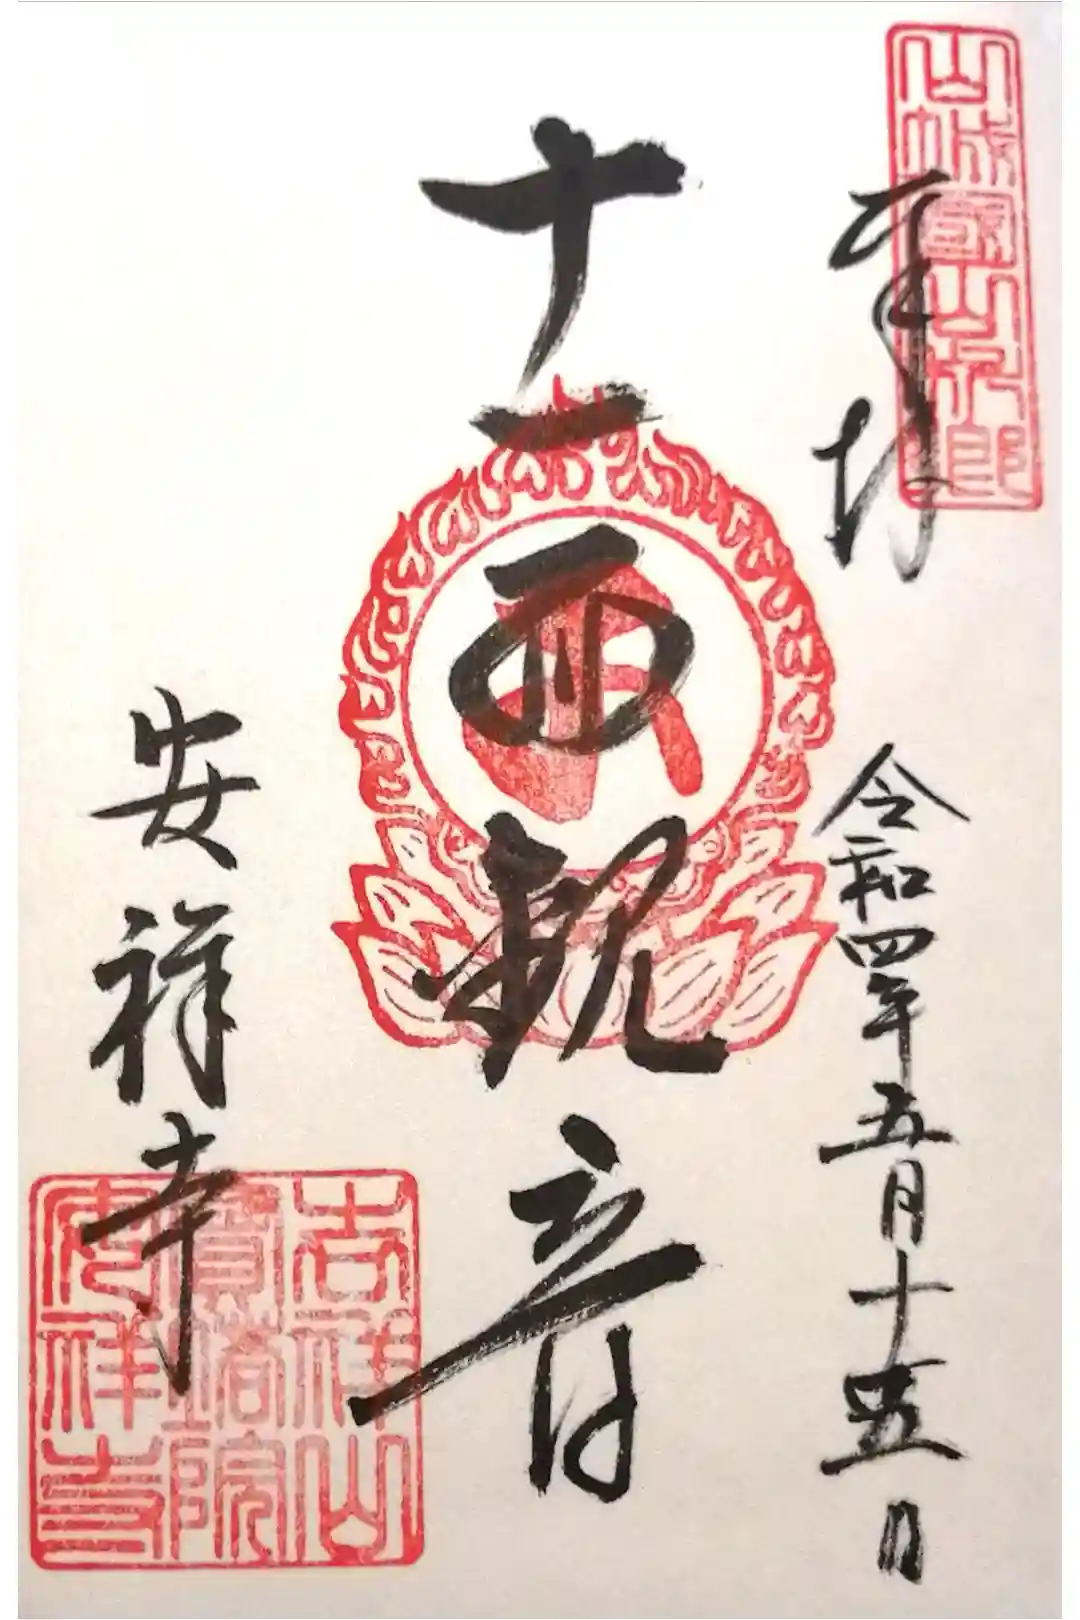 奉拝
令和四年五月十五日
山城國山科郷
十一面観音
安祥寺
吉祥山
寶塔院
安祥寺